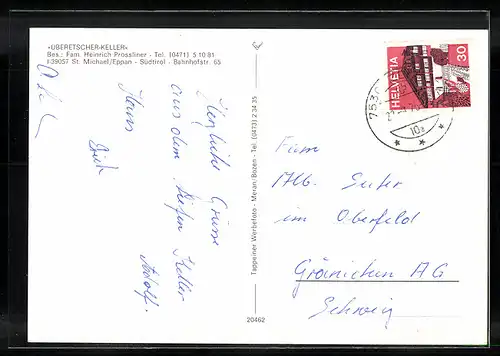 «ÜBERETSCHER-KELLER»
Bes.: Fam. Heinrich Prossliner - Tel. (0471) 5 10 81
I-39057 St. Michael/Eppan - Südtirol - Bahnhofstr. 65
Herzliche Grüsse
aus dem tiefen Keller
Adolf.
Hans
Tappeiner Werbefoto - Meran/Bozen - Tel. (0473) 2 34 35
20462
HELVETIA
30
753
10a
Fam
Alb. Suter
im Oberfeld
Gränichen AG
Schweiz